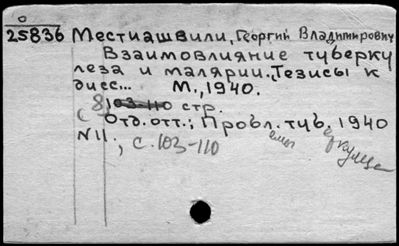 0
25836 Местиашвили, Георгий Владимирович
Взаимовлияние туберку
леза и малярии. Тезисы к
дисс... М., 1940.
(8) 103-110 стр.
Отд. отт.; Пробл. туб. 1940
N 11. ; с. 103-110 емы еркулеза